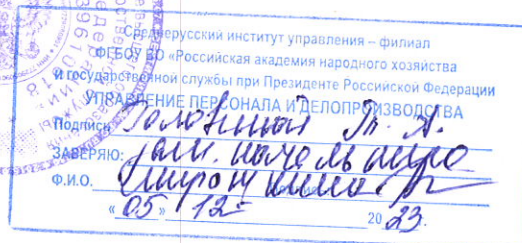 Среднерусский институт управления – филиал
ФГБОУ ВО «Российская академия народного хозяйства
и государственной службы при Президенте Российской Федерации
УПРАВЛЕНИЕ ПЕРСОНАЛА И ДЕЛОПРОИЗВОДСТВА
Подпись Головиной Т. А.
ЗАВЕРЯЮ: зам. начальника
Ф.И.О.
«05» 12 2023.